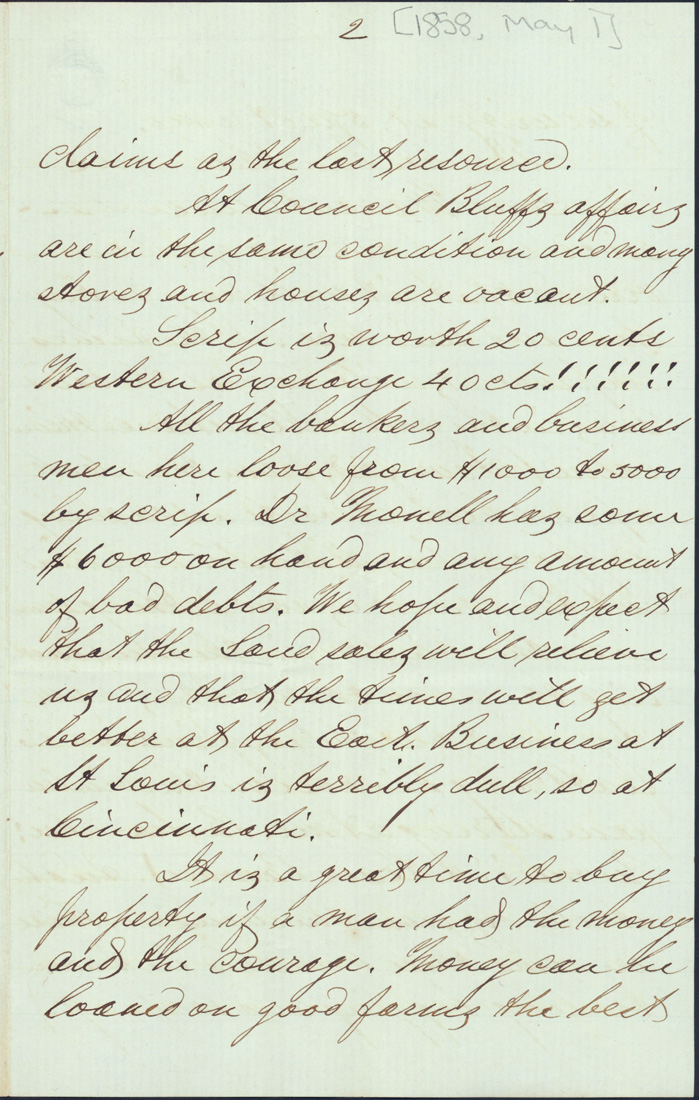 2 [1858, May 1]
claims as the last resource.
At Council Bluffs affairs
are in the same condition and many
stores and houses are vacant.
Scrip is worth 20 cents
Western Exchange 40cts!!!!!!!
All the bankers and business
men here loose from $1000 to 5000
by scrip. Dr Monell has some
$6000 on hand and any amount
of bad debts. We hope and expect
that the Land sales will relieve
us and that the times will get
better at the East. Business at
St Louis is terribly dull, so at
Cincinnati.
It is a great time to buy
property if a man had the money
and the courage. Money can be
loaned on good farms the best